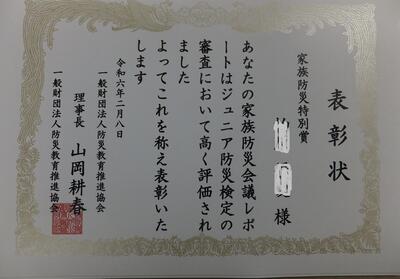 表彰状
家族防災特別賞
様
あなたの家族防災会議レポ
ートはジュニア防災検定の
審査において高く評価され
ました
よってこれを称え表彰いた
します
令和六年二月八日
一般財団法人防災教育推進協会
理事長 山岡耕春
一般財団法人防災教育推進協会